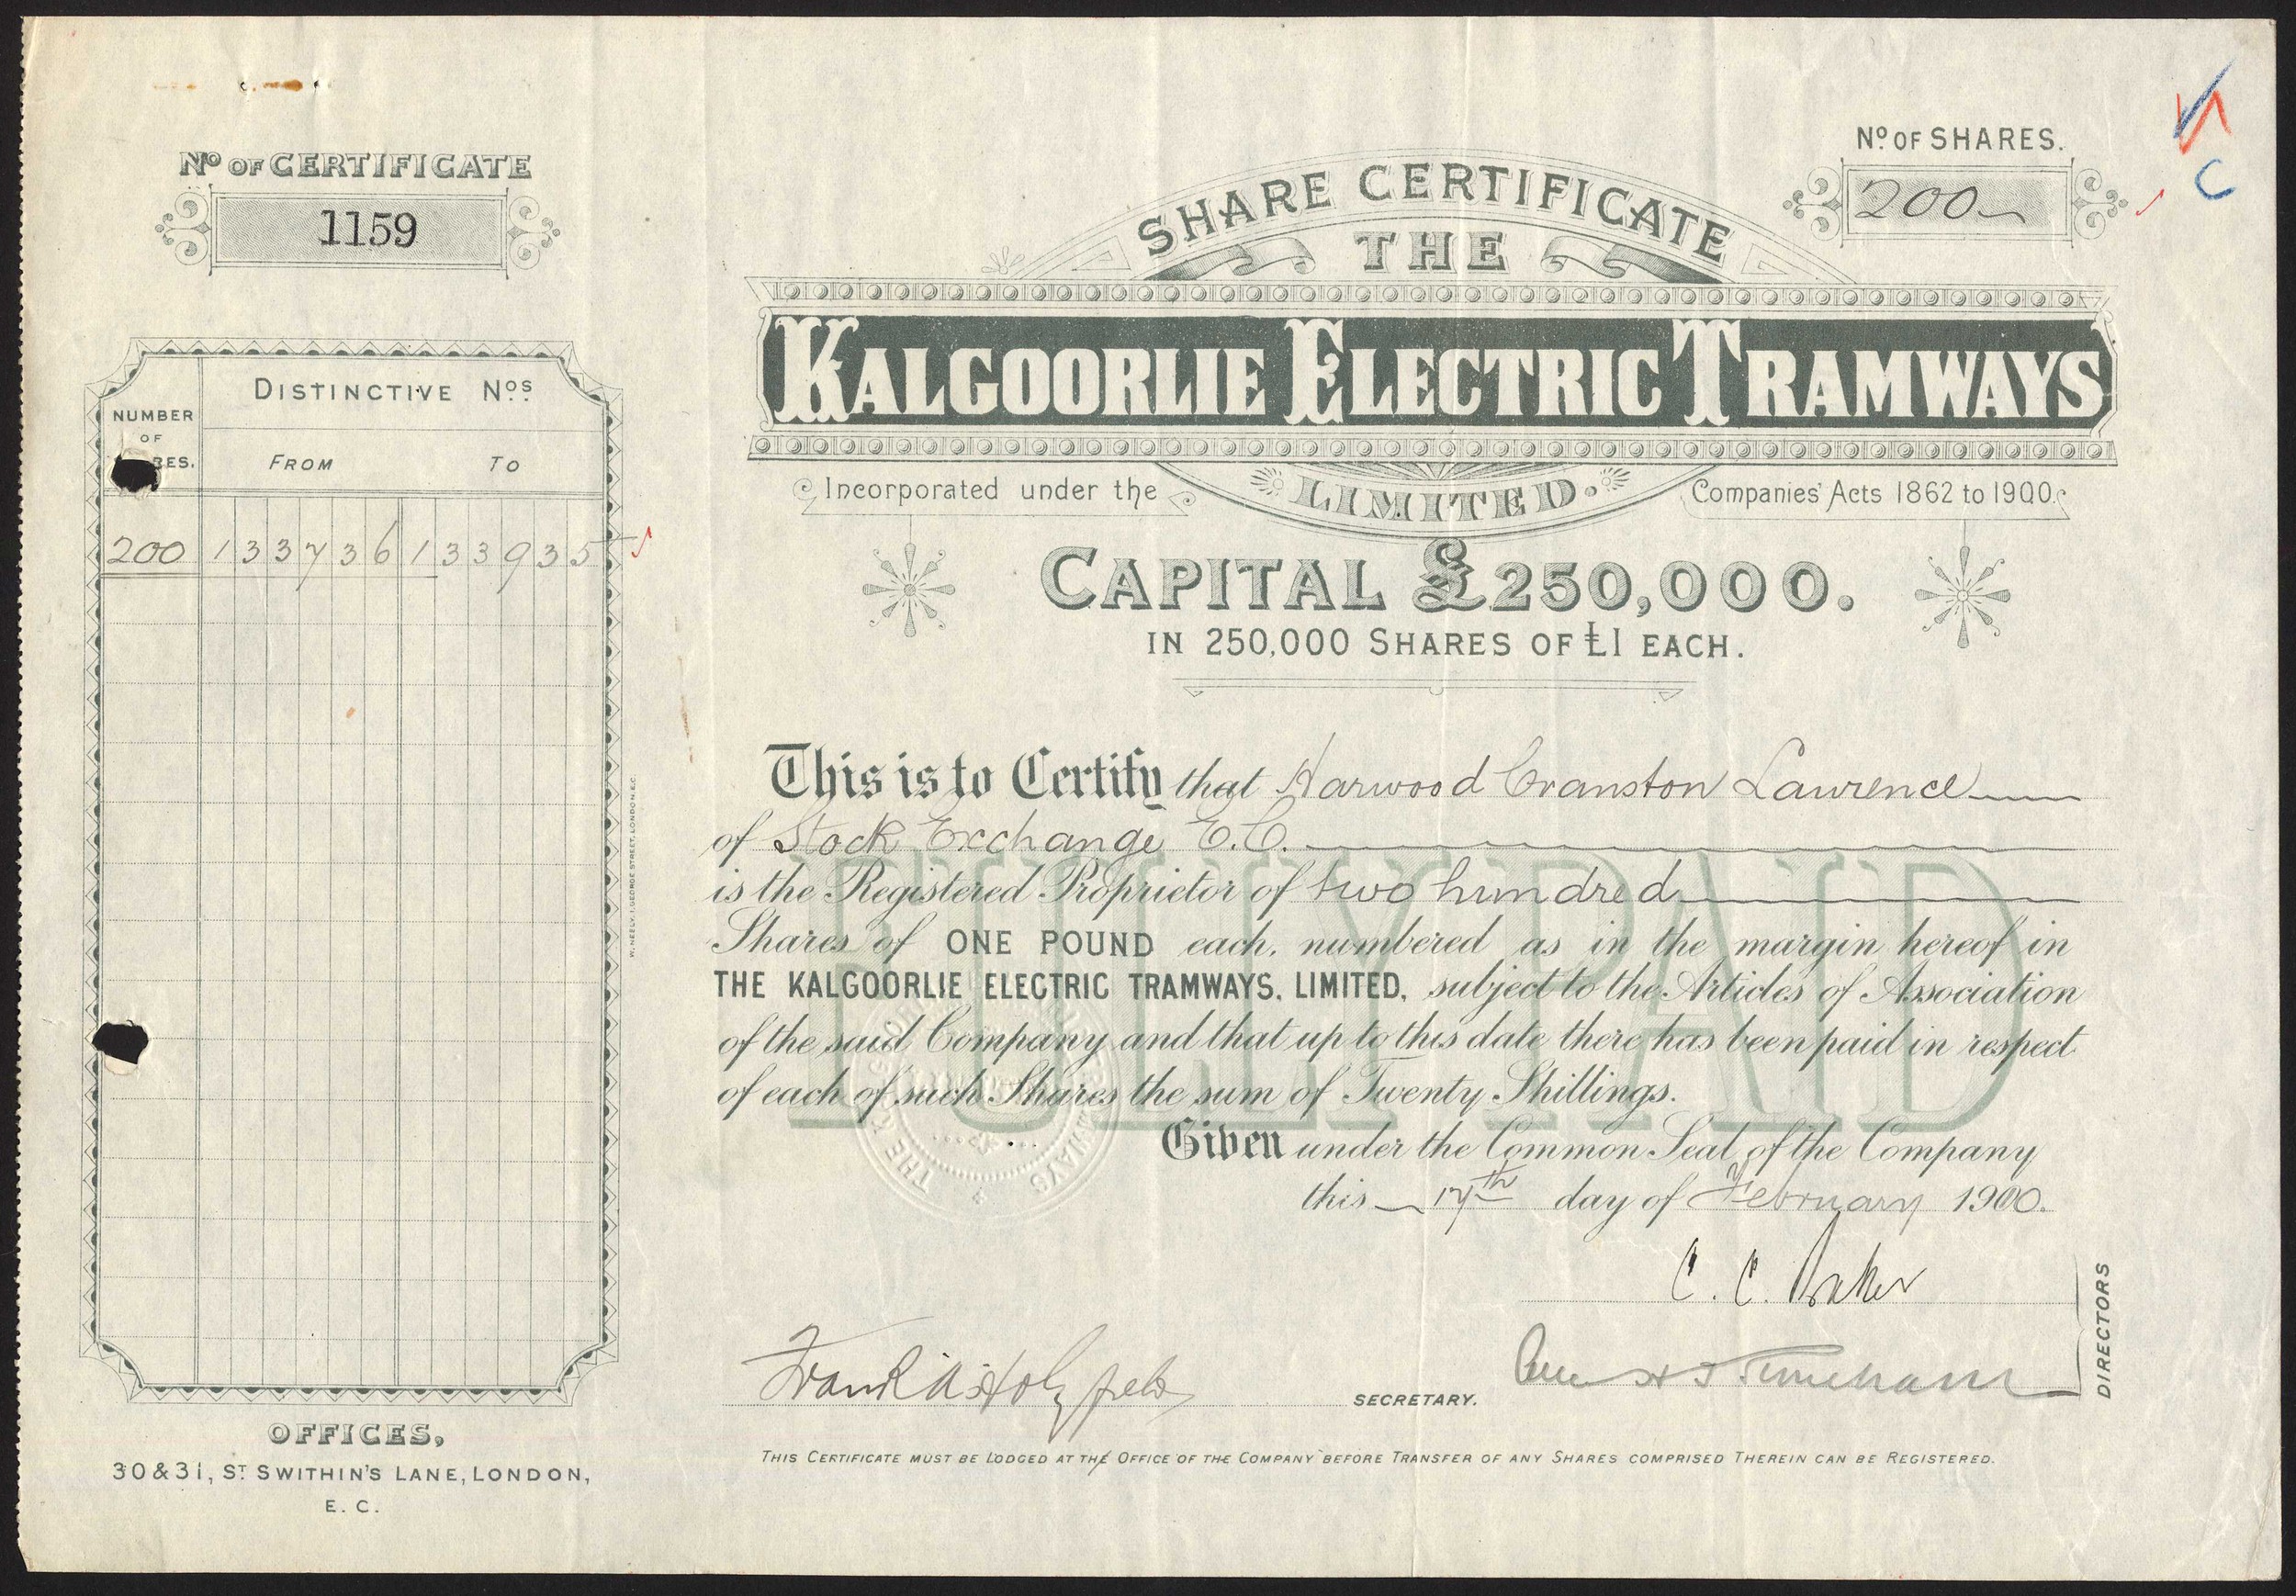 Nº OF CERTIFICATE
1159
DISTINCTIVE Nos
NUMBER
OF
RES.
FROM TO
200 133736 133935
W. NEELY, 1, GEORGE STREET, LONDON E.C.
OFFICES,
30 & 31, ST SWITHIN'S LANE, LONDON,
E. C.
Nº OF SHARES.
200
C
SHARE CERTIFICATE
THE
KALGOORLIE ELECTRIC TRAMWAYS
LIMITED.
Incorporated under the Companies' Acts 1862 to 1900.
CAPITAL £250,000.
IN 250,000 SHARES OF £1 EACH.
This is to Certify that Harwood Cranston Lawrence
of Stock Exchange E.C.
is the Registered Proprietor of two hundred
Shares of ONE POUND each, numbered as in the margin hereof in
THE KALGOORLIE ELECTRIC TRAMWAYS, LIMITED, subject to the Articles of Association
of the said Company and that up to this date there has been paid in respect
of each of such Shares the sum of Twenty Shillings.
FULLY PAID
Given under the Common Seal of the Company
this 17th day of February 1900.
C. C.
DIRECTORS
Frank
SECRETARY.
THIS CERTIFICATE MUST BE LODGED AT THE OFFICE OF THE COMPANY BEFORE TRANSFER OF ANY SHARES COMPRISED THEREIN CAN BE REGISTERED.